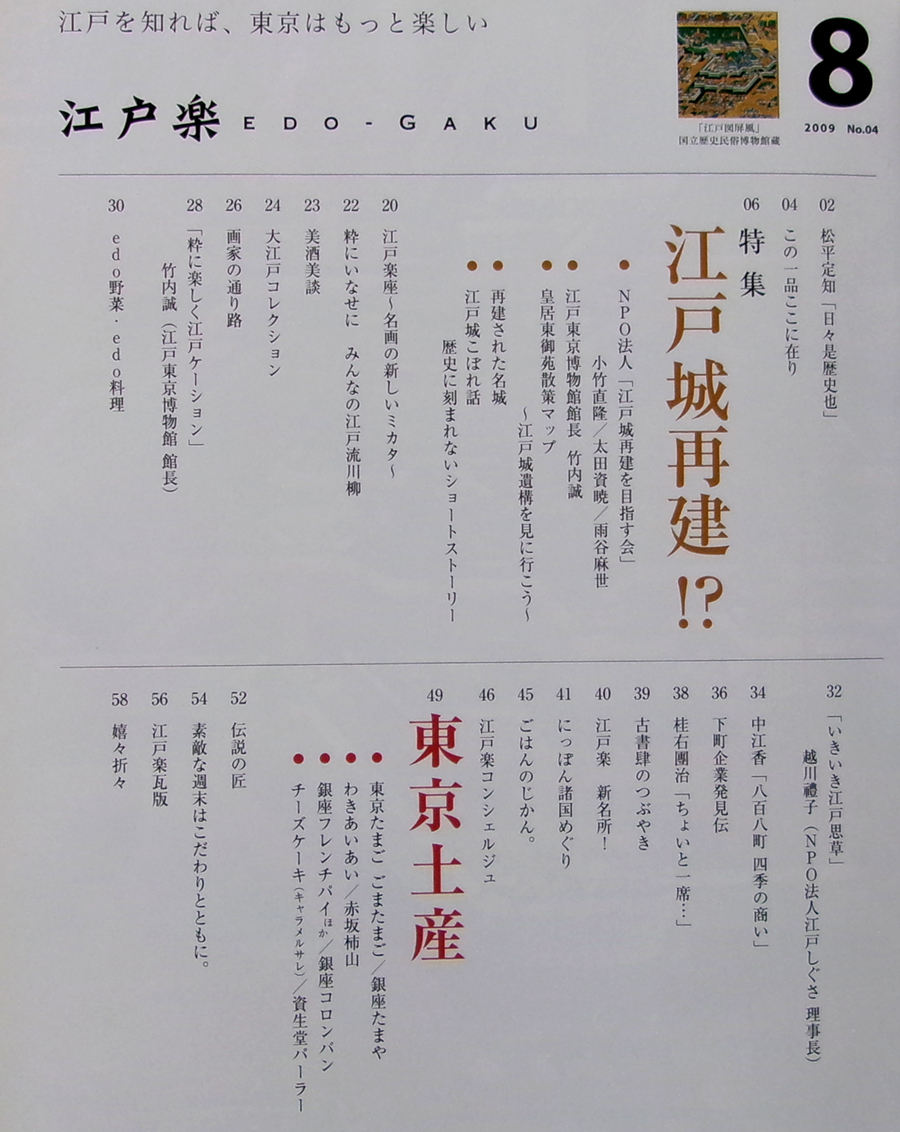 江戸を知れば、東京はもっと楽しい
江戸楽 EDO-GAKU
「江戸図屏風」
国立歴史民俗博物館蔵
8
2009 No.04
02 松平定知「日々是歴史也」
04 この一品ここに在り
06 特集
江戸城再建!?
● NPO法人「江戸城再建を目指す会」
小竹直隆/太田資暁/雨谷麻世
● 江戸東京博物館館長 竹内誠
● 皇居東御苑散策マップ
～江戸城遺構を見に行こう～
● 再建された名城
● 江戸城こぼれ話
歴史に刻まれないショートストーリー
20 江戸楽座～名画の新しいミカタ～
22 粋にいなせに みんなの江戸流川柳
23 美酒美談
24 大江戸コレクション
26 画家の通り路
28 「粋に楽しく江戸ケーション」
竹内誠（江戸東京博物館 館長）
30 edo野菜・edo料理
32 「いきいき江戸思草」
越川禮子（NPO法人江戸しぐさ 理事長）
34 中江香「八百八町 四季の商い」
36 下町企業発見伝
38 桂右團治「ちょいと一席…」
39 古書肆のつぶやき
40 江戸楽 新名所！
41 にっぽん諸国めぐり
45 ごはんのじかん。
46 江戸楽コンシェルジュ
49 東京土産
● 東京たまご ごまたまご/銀座たまや
● わきあいあい/赤坂柿山
● 銀座フレンチパイほか/銀座コロンバン
● チーズケーキ（キャラメルサレ）/資生堂パーラー
52 伝説の匠
54 素敵な週末はこだわりとともに。
56 江戸楽瓦版
58 嬉々折々